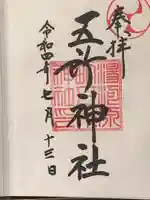 奉拝
五所神社
令和四年七月十三日